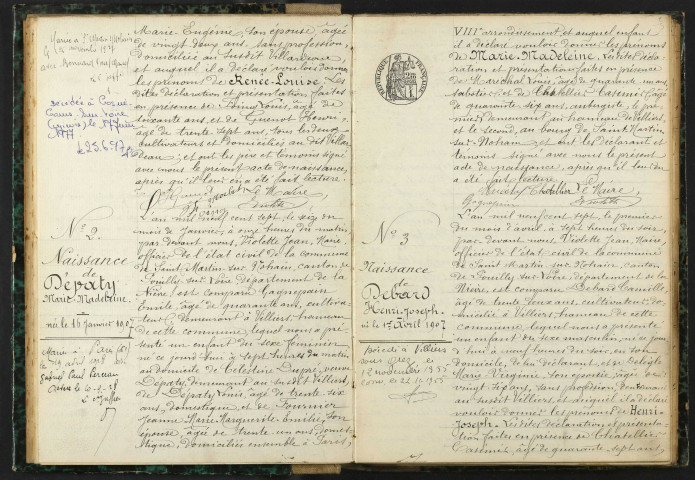 Marie Eugénie, son épouse, âgée
de vingt-deux ans, sans profession,
domiciliée au susdit Villardeau
et auquel il a déclaré vouloir donner
les prénoms de René-Louise. Les
dites déclaration et présentation faites
en présence de Louis, âgé de
soixante ans et de Guenot Henri,
âgé de trente sept ans, tous les deux
cultivateurs et domiciliés au dit Villar
deau; et ont les père et témoins signé
avec nous le présent acte de naissance,
après qu'il leur en a été fait lecture.
Le Maire,
Violette
décédée à Cosne
Cours-sur-Loire
(Nièvre) le 17 Juin
1977
N° 2
Naissance
de
Dépaty
Marie-Madeleine,
née le 16 Janvier 1907
L'an mil neuf cent sept, le seize du
mois de janvier, à onze heures du matin
par devant nous, Violette Jean, Maire,
officier de l'état civil de la commune
de Saint-Martin-sur-Nohain, canton de
Pouilly-sur-Loire, Département de la
Nièvre, est comparu Gagnepain
Emile, âgé de quarante ans, cultiva-
teur, demeurant à Villiers, hameau
de cette commune, lequel nous a pré-
senté un enfant du sexe féminin
né ce jourd'hui à sept heures du matin
au domicile de Célestine Dupré, veuve
Dépaty, demeurant au susdit Villiers,
de Dépaty Louis, âgé de trente six
ans, domestique et de Fournier
Jeanne Marie Marguerite Emilie, son
épouse, âgée de trente un ans, domes-
tique, domiciliés ensemble à Paris,
VIIIe arrondissement et auquel enfant
il a déclaré vouloir donner les prénoms
de Marie-Madeleine. Lesdites décla-
ration et présentation faites en présence
de Maréchal Louis, âgé de quarante ans,
sabotier et de Chatellier Casimir, âgé
de quarante six ans, aubergiste, le pre-
mier demeurant au hameau de Villiers,
et le second, au bourg de Saint-Martin
sur-Nohain, et ont les déclarant et
témoins signé avec nous le présent
acte de naissance, après qu'il leur en
a été fait lecture.
Chatellier Le Maire,
Gagnepain Violette
N° 3
Naissance
de
Debard
Henri-Joseph
né le 1er Avril 1907
Décédé à Villiers
L'an mil neuf cent sept, le premier
du mois d'avril, à sept heures du soir,
par devant nous Violette Jean, Maire,
officier de l'état civil de la commune
de Saint-Martin-sur-Nohain, canton
de Pouilly-sur-Loire, département de la
Nièvre, est comparu Debard Camille,
âgé de trente deux ans, cultivateur, do-
micilié à Villiers, hameau de cette
commune, lequel nous a présenté
un enfant du sexe masculin, né ce jour
d'hui à neuf heures du soir, en son
domicile, de lui déclarant, et de
Marie Virginie, son épouse, âgée de
vingt six ans, sans profession, demeurant
au susdit Villiers, et auquel il a déclaré
vouloir donner les prénoms de Henri-
Joseph. Lesdites déclaration et présenta-
tion faites en présence de Chatellier
Casimir, âgé de quarante sept ans,